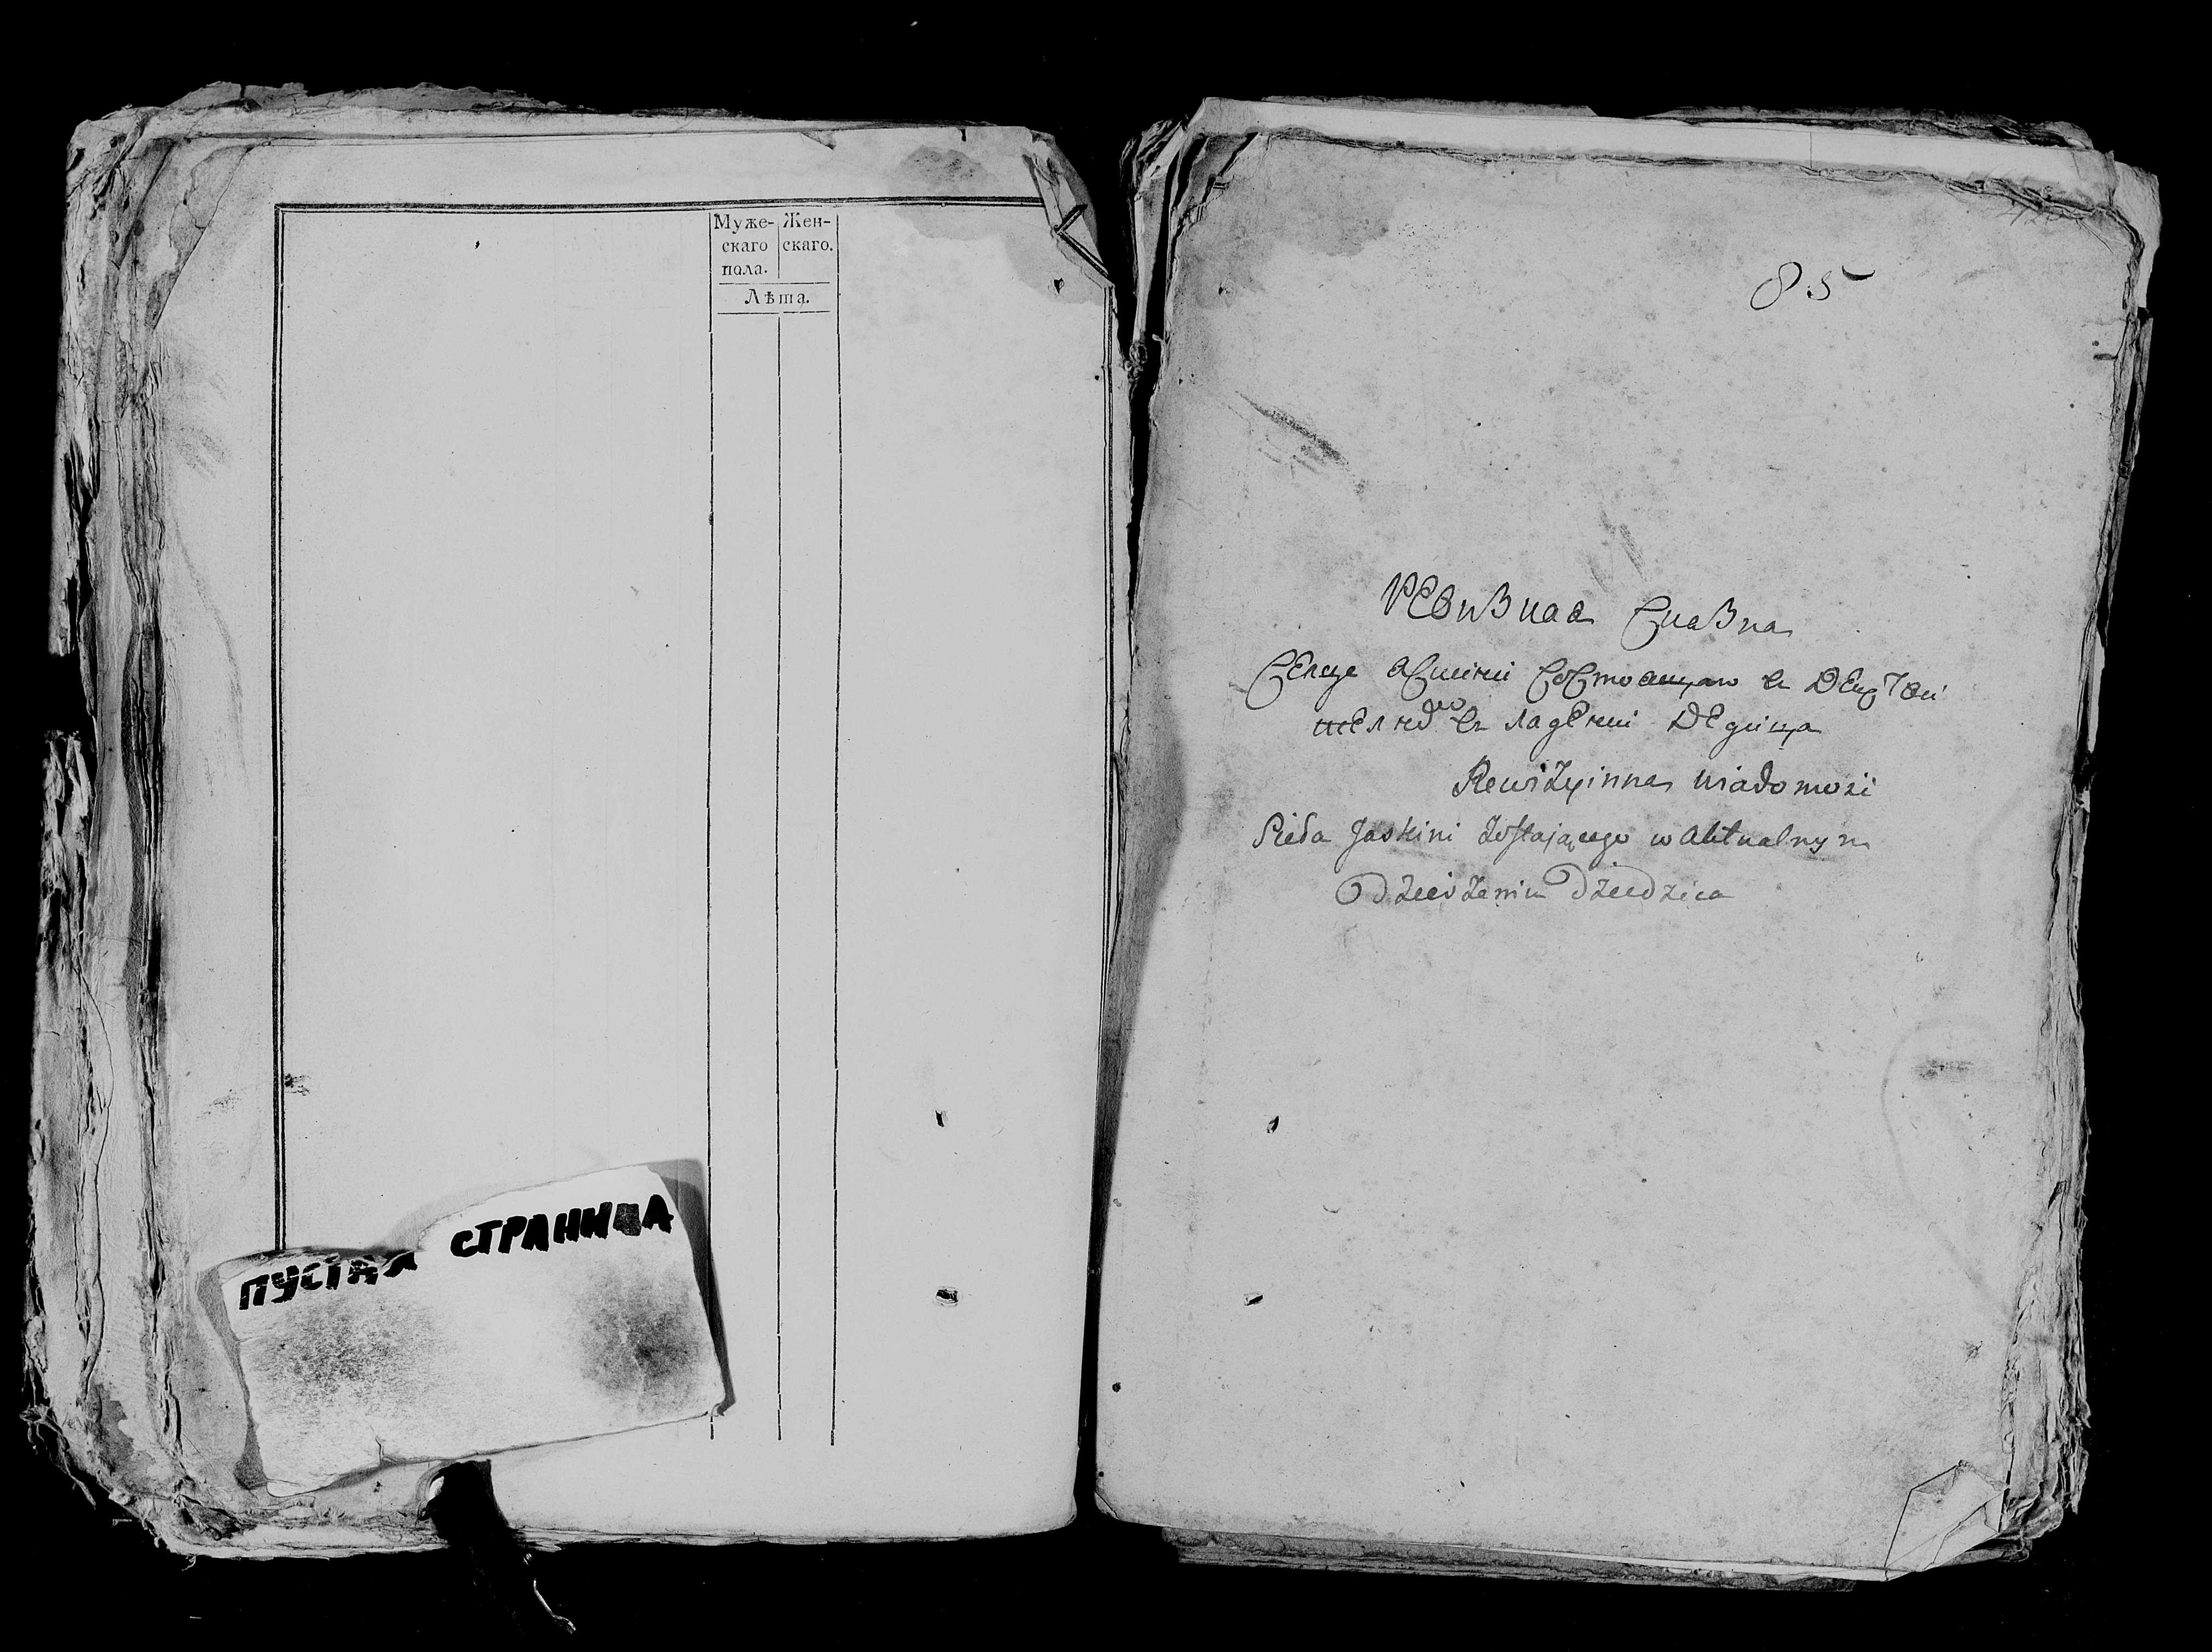 Муже-
скаго
пола.
Жен-
скаго.
Лѣта.
ПУСТАЯ СТРАНИЦА
85
РЕвизная Сказка
СЕлце яСкини СоСтоящаго в ДЕйСтви
тЕлном в ладЕнии ДЕдица
Rewizyinna wiadomość
Sioła Jaskini zostającego w aktualnym
Dzierżeniu Dziedzica